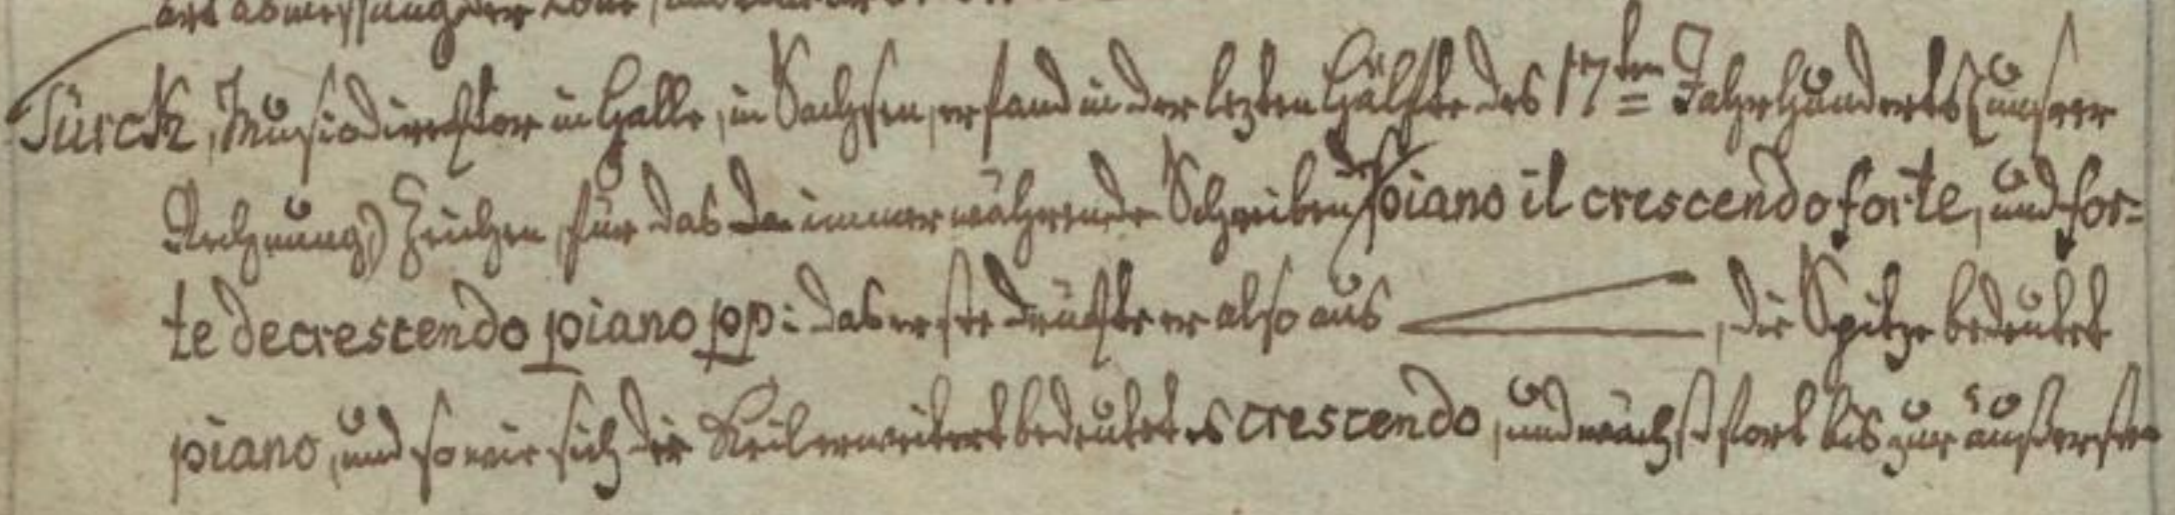 der Töne, und
Türck, Musicdirecktor in Halle, in Sachsen, erfand in der lezten Hälfte des 17ten Jahrhunderts (unsrer
Rechnung) Zeichen, für das immerwährende Schreiben piano il crescendo forte, und for=
te decrescendo piano pp: das erste drückte er also aus , die Spitze bedeutet
piano, und so wie sich der Keil erweitert bedeutet es crescendo, und wächßt fort bis zur äußersten